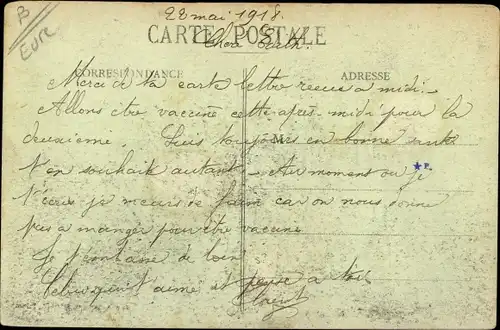 B
Eure
22 mai 1918.
CARTE POSTALE
CORRESPONDANCE
ADRESSE
Merci de ta carte lettre recue a midi.
Allons être vacciné cette après-midi pour la
deuxième. Suis toujours en bonne santé
M
t'en souhaite autant. Au moment où je
*P.
t'écris je meurs de faim car on nous donne
pas a manger pour être vacciné
Je t'embrasse de loin
Celui qui t'aime et pense a toi